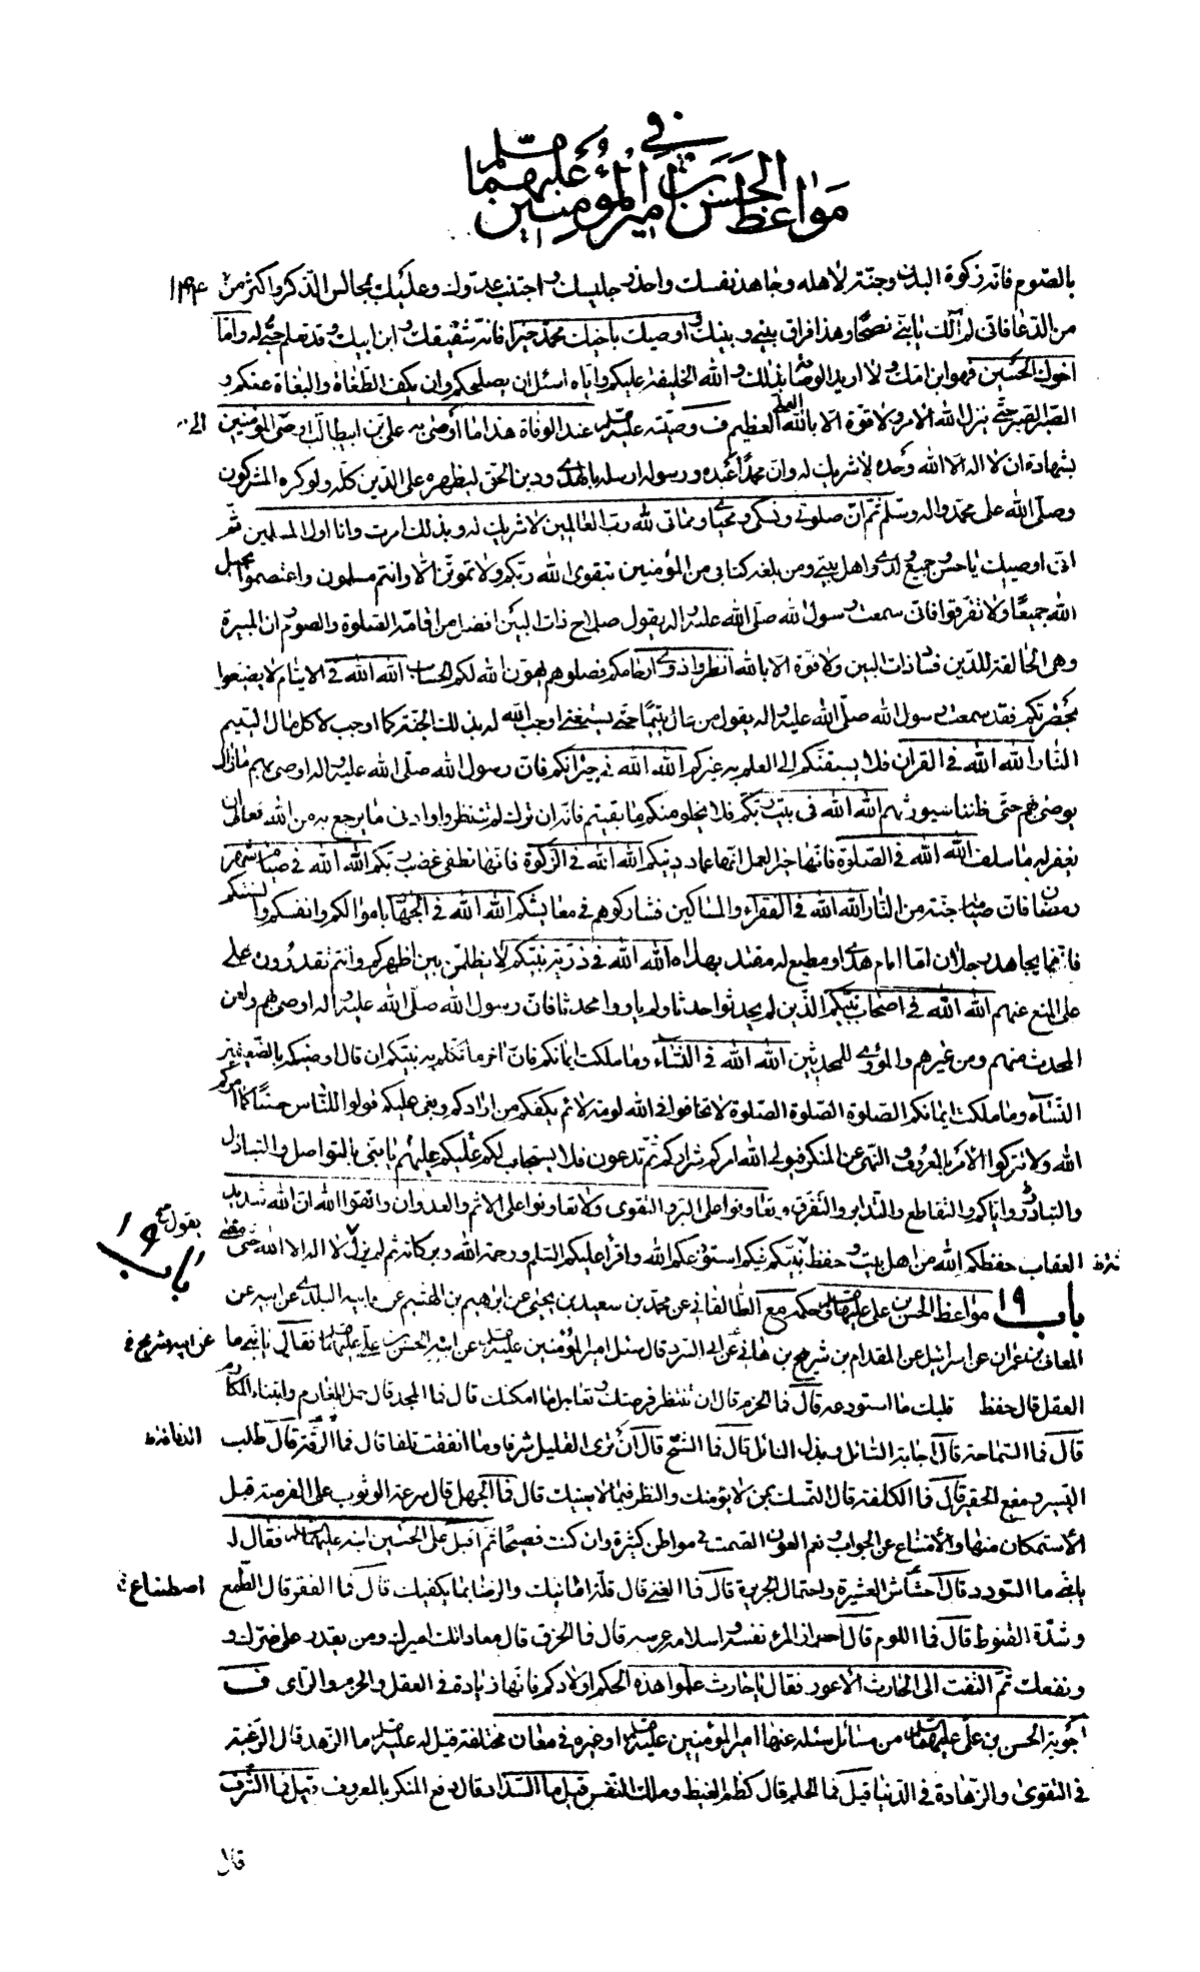 في
مواعظ الحسن بن أمير المؤمنين عليهما
بالصّوم فانّه زكوة البدن وجنّة لاهله وجاهد نفسك واحذر جليسك واجتنب عدوّك وعليك بمجالس الذّكر واكثر من
من الدّعا فانّى لم آلك يا بنىّ نصحًا وهذا فراق بينى وبينك واوصيك باخيك محمّد خيرا فانّه شقيقك وابن ابيك وقد تعلم حبّى له وامّا
اخوك الحسين فهو ابن امّك ولا اريد الوصاة بذلك والله الخليفة عليكم وايّاه اسئل ان يصلحكم وان يكفّ الطّغاة والبغاة عنكم و
الصّبر الصّبر حتّى ينزل الله الامر ولا قوّة الّا بالله العلى العظيم ف وصيّته عليه عند الوفاة هذا ما أوصى به علىّ بن ابيطالب اوصى المؤمنين
بشهادة ان لا اله الا الله وحده لا شريك له وان محمّدًا عبده ورسوله ارسله بالهدى ودين الحق ليظهره على الدّين كلّه ولو كره المشركون
وصلّى الله على محمّد واله وسلّم ثمّ انّ صلوتى ونسكى ومحياى ومماتى لله ربّ العالمين لا شريك له وبذلك امرت وانا اول المسلمين ثمّ
انّى اوصيك يا حسن وجميع ولدى واهل بيتى ومن بلغه كتابى من المؤمنين بتقوى الله ربّكم ولا تموتنّ الّا وانتم مسلمون واعتصموا بحبل
الله جميعًا ولا تفرّقوا فانّى سمعت رسول الله صلّى الله عليه واله يقول صلاح ذات البين افضل من اقامة الصّلوة والصّوم وان المبيرة
وهى الحالقة للدّين فساد ذات البين ولا قوّة الّا بالله انظروا ذوى ارحامكم فصلوهم يهون الله لكم الحساب الله الله فى الايتام لا يضيعوا
بحضرتكم فقد سمعت رسول الله صلّى الله عليه واله يقول من عال يتيمًا حتى يستغنى اوجب الله له بذلك الجنّة كما اوجب لاكل مال اليتيم
النّار الله الله فى القران فلا يسبقنّكم الى العلم به غيركم الله الله فى جيرانكم فان رسول الله صلّى الله عليه واله اوصى بهم ما زال
يوصى بهم حتى ظننا سيورثهم الله الله فى بيت ربّكم فلا يخلو منكم ما بقيتم فانّه ان ترك لم تنتظروا وادنى ما يرجع به من الله تعالى ان
يغفر له ما سلف الله الله فى الصّلوة فانّها خير العمل انّها عماد دينكم الله الله فى الزّكوة فانّها تطفى غضب ربّكم الله الله فى صيام شهر
رمضان فانّ صيامه جنّة من النّار الله الله فى الفقراء والمساكين فشاركوهم فى معايشكم الله الله فى الجهاد باموالكم وانفسكم والسنتكم
فانّما يجاهد رجلان امّا امام هدى او مطيع له مقتد بهداه الله الله فى ذرّيّة نبيّكم لا يظلمنّ بين اظهركم وانتم تقدرون على
على المنع عنهم الله الله فى اصحاب نبيّكم الّذين لم يحدثوا حدثا ولم ياووا محدثا فان رسول الله صلّى الله عليه واله اوصى بهم ولعن
المحدث منهم ومن غيرهم والمؤوى للمحدثين الله الله فى النّساء وما ملكت ايمانكم فان اخر ما تكلّم به نبيّكم ان قال اوصيكم بالضّعيفين
النّساء وما ملكت ايمانكم الصّلوة الصّلوة الصّلوة لا تخافوا فى الله لومة لائم يكفكم من ارادكم وبغى عليكم قولوا للنّاس حسنًا كما امركم
الله ولا تتركوا الامر بالمعروف والنّهى عن المنكر فيولى الله امركم شراركم ثمّ تدعون فلا يستجاب لكم عليكم عليهم يا بنى بالتواصل والتباذل
والتبادر وايّاكم والتقاطع والتّدابر والتّفرّق وتعاونوا على البرّ والتقوى ولا تعاونوا على الاثم والعدوان واتقوا الله انّ الله شديد
العقاب حفظكم الله من اهل بيت وحفظ نبيّكم فيكم استودعكم الله واقرأ عليكم السّلم ورحمة الله وبركاته ثم لم يزل يقول لا اله الا الله حتى مضى
باب ١٩ مواعظ الحسن بن على عليهما وحكمه مع الطّالقانى عن محمّد بن سعيد بن يحيى عن ابرهيم بن الهيثم عن ابيه البلدى عن ابيه عن
المعافى بن عمران عن اسرائيل عن المقدام بن شريح بن هانى عن ابى السّرد قال سئل امير المؤمنين عليه عن ابنه الحسن بن على عليهما فقال يا بنىّ ما
العقل قال حفظ قلبك ما استودعه قال فما الحزم قال ان تنتظر فرصتك وتعاجل ما امكنك قال فما المجد قال حمل المغارم وابتناء المكارم
قال فما السّماحة قال اجابة السّائل وبذل النائل قال فما الشّحّ قال ان ترى القليل شرفا وما انفقت تلفا قال فما الرّقة قال طلب
اليسير ومنع الحقير قال فما الكلفة قال التمسّك بمن لا يؤمنك والنظر فيما لا يعنيك قال فما الجهل قال سرعة الوثوب على الفرصة قبل
الاستمكان منها والامتناع عن الجواب ونعم العون الصّمت فى مواطن كثيرة وان كنت فصيحًا ثم اقبل على الحسين ابنه عليهما فقال له
يا بنىّ ما السّودد قال احشاش العشيرة واحتمال الجريرة قال فما الغنى قال قلّة امانيك والرضا بما يكفيك قال فما الفقر قال الطّمع
وشدّة القنوط قال فما اللوم قال احراز المرء نفسه واسلامه عرسه قال فما الخرق قال معاداتك اميرك ومن يقدر على ضرّك و
ونفعك ثمّ التفت الى الحارث الاعور فقال يا حارث علّموا هذه الحكم اولادكم فانّها زيادة فى العقل والحزم والرّاى ف
اجوبة الحسن بن على عليهما من مسائل سئله عنها امير المؤمنين عليه او غيره فى معان مختلفة قيل له عليه ما الزّهد قال الرّغبة
فى التقوى والزّهادة فى الدّنيا قيل فما الحلم قال كظم الغيظ وملك النّفس قيل ما السّداد قال دفع المنكر بالمعروف قيل فما الشّرف
قال
يقول
باب ١٩
عن ابيه شريح
اصطناع